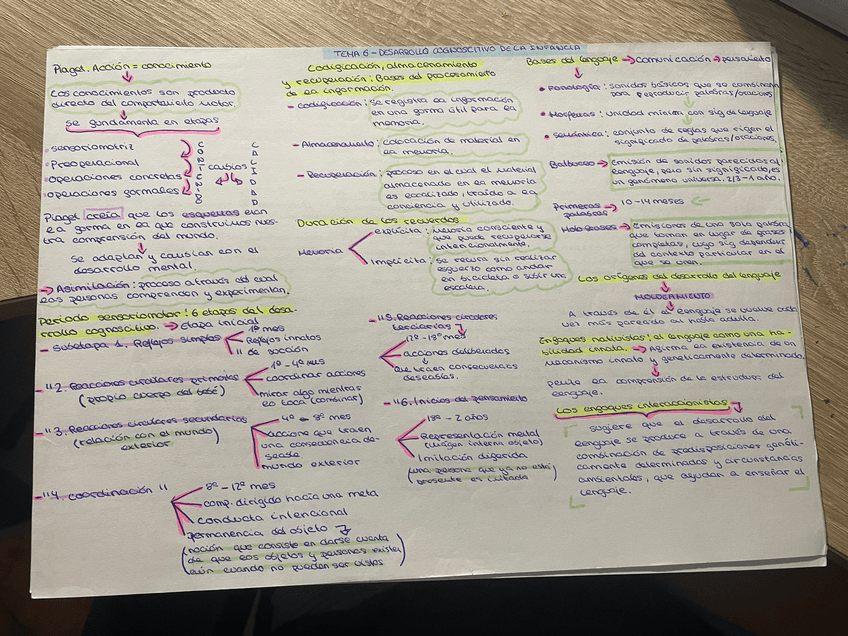 TEMA 6 - DESARROLLO COGNOSCITIVO DE LA INFANCIA
Piaget. Acción = conocimiento
Los conocimientos son producto
directo del comportamiento motor.
se fundamenta en etapas
- sensoriomotriz
- Preoperacional
- operaciones concretas
- operaciones formales
cambios
CALIDAD
Piaget creía que los esquemas eran
la forma en la que construimos nues-
tra comprensión del mundo.
Se adaptan y cambian con el
desarrollo mental.
→ Asimilación: proceso a través del cual
las personas comprenden y experimentan.
Periodo sensoriomotor: 6 etapas del desa-
rrollo cognoscitivo. → Etapa inicial
- subetapa 1. Reflejos simples
1º mes
Reflejos innatos
" de succión
- "2. Reacciones circulares primarias
(propio cuerpo del bebé)
1º - 4º mes
coordinar acciones
mirar algo mientras
lo toca (combinar)
- "3. Reacciones circulares secundarias
(relación con el mundo
exterior)
4º - 8º mes
accione que traen
una consecuencia de-
seada
mundo exterior
- "4. coordinación "
8º - 12º mes
comp. dirigido hacia una meta
conducta intencional
permanencia del objeto
(noción que consiste en darse cuenta
de que los objetos y personas existen
aún cuando no pueden ser vistos)
Codificación, almacenamiento
y recuperación: Bases del procesamiento
de la información.
- codificación: se registra la información
en una forma útil para la
memoria.
- Almacenamiento: colocación de material en
la memoria.
- Recuperación: proceso en el cual el material
almacenado en la memoria
es localizado, traído a la
conciencia y utilizado.
Duración de los recuerdos
Memoria
explícita: Memoria consciente y
que puede recuperarse
intencionalmente.
Implícita: se recura sin realizar
esfuerzo como andar
en bicicleta o subir una
escalera.
- "5. Reacciones circulares
terciarias
12º - 18º mes
acciones deliberadas
que traen consecuencias
deseadas.
- "6. Inicios de pensamiento
18º - 2 años
Representación mental
(imagen interna objeto)
Imitación diferida
(una persona que ya no está
presente es imitada)
Bases del lenguaje → comunicación → pensamiento
• Fonología: sonidos básicos que se combinan
para reproducir palabras/oraciones
• Morfemas: unidad mínima con sig de lenguaje
• semántica: conjunto de reglas que rigen el
significado de palabras/oraciones.
Balbuceo → Emisión de sonidos parecidos al
lenguaje, pero sin significado, es
un fenómeno universal. 2/3 - 1 año.
Primeras
palabras → 10 - 14 meses
Holofrases → Emisiones de una sola palabra
que toman en lugar de frases
completas, cuyo sig depender
del contexto particular en el
que se usen.
Los orígenes del desarrollo del lenguaje
MOLDEAMIENTO
A través de él el lenguaje se vuelve cada
vez más parecido al habla adulta.
Enfoques nativistas: el lenguaje como una ha-
bilidad innata. → Afirma la existencia de un
mecanismo innato y genéticamente determinado.
permite la comprensión de la estructura del
lenguaje.
Los enfoques interaccionistas
sugiere que el desarrollo del
lenguaje se produce a través de una
combinación de predisposiciones genéti-
camente determinadas y circunstancias
ambientales, que ayudan a enseñar el
lenguaje.